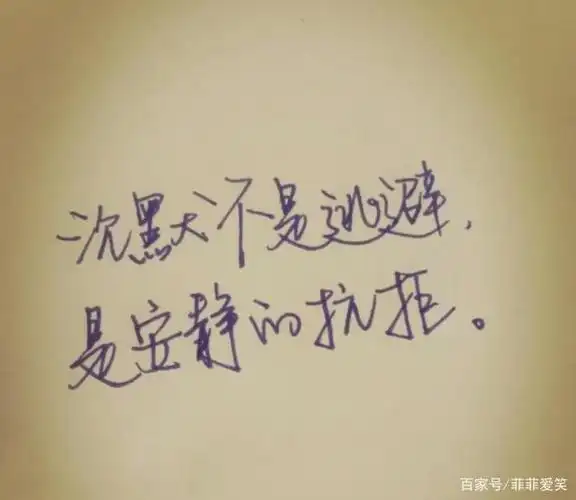 沉默不是逃避,
是安静的抗拒。
百家号/菲菲爱笑